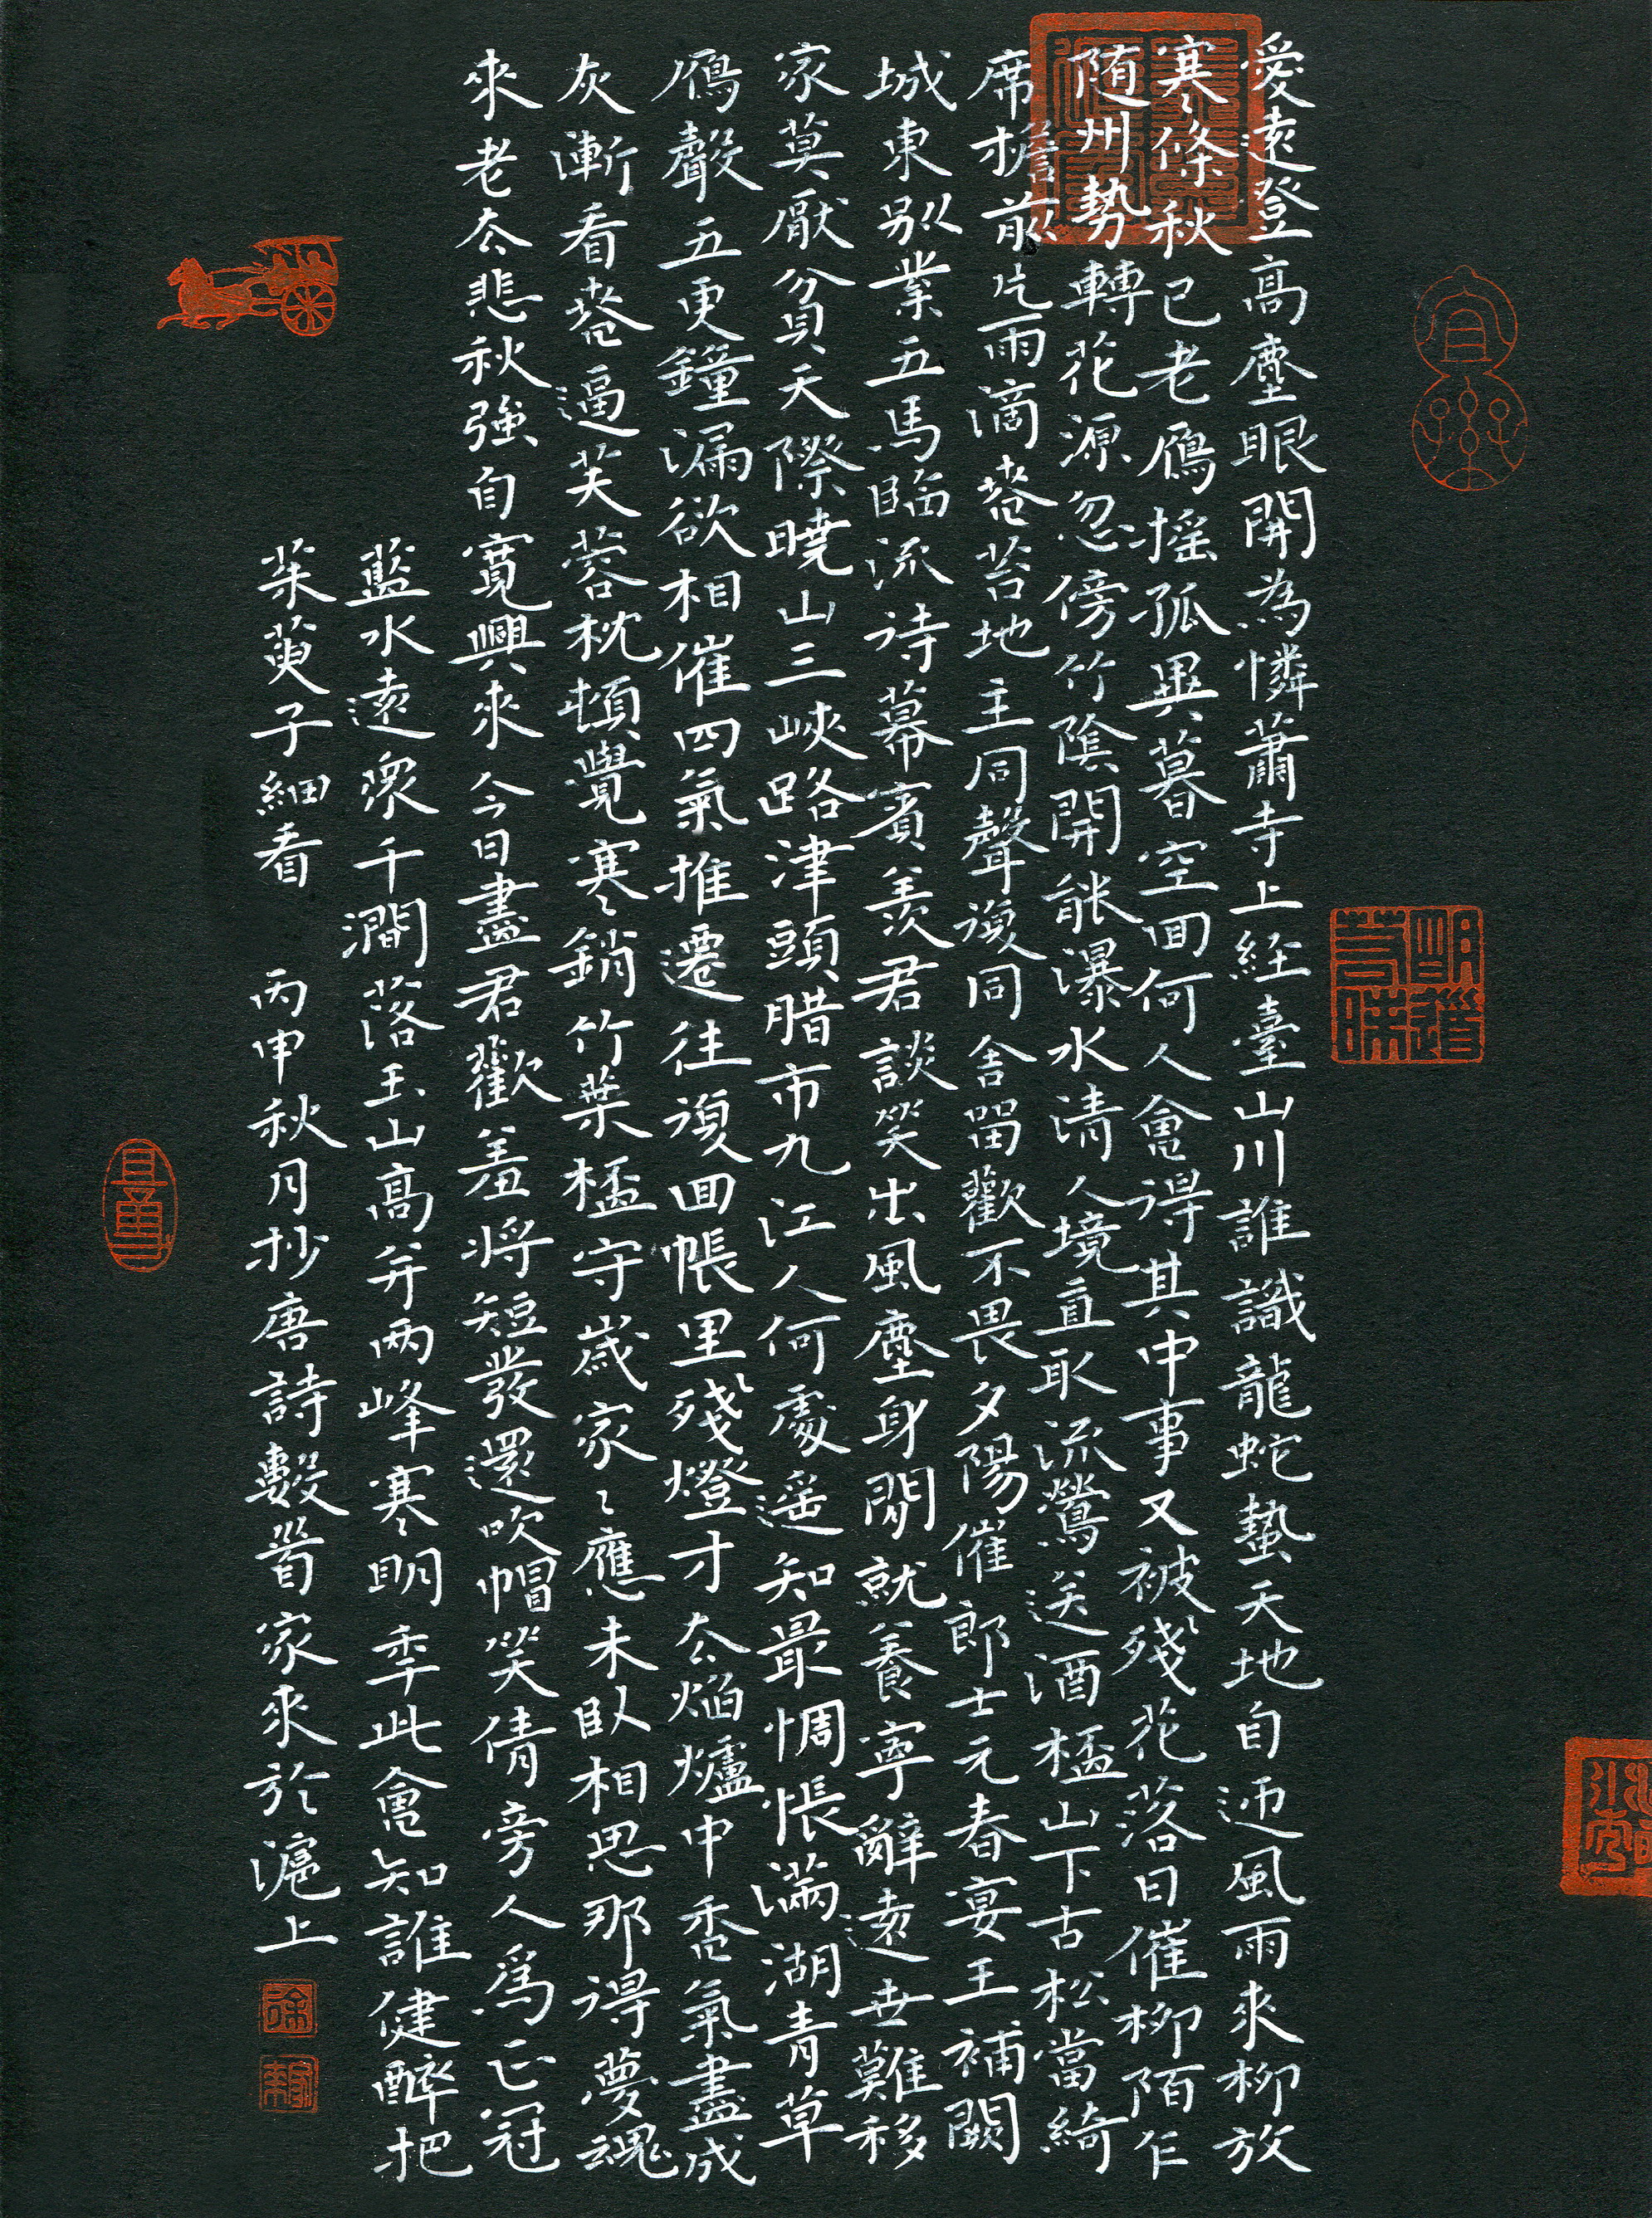 愛遠登高塵眼開為憐蕭寺上經臺山川誰識龍蛇蟄天地自迎風雨來柳放
寒條秋已老雁搖孤興暮空回何人會得其中事又被殘花落日催柳陌乍
随州勢轉花源忽傍竹陰開能瀑水清人境直取流鶯送酒杯山下古松當綺
席檐前片雨滴春苔地主同聲復同舍留歡不畏夕陽催郎士元春宴王補闕
城東別業五馬臨流待幕賓羨君談笑出風塵身閒就養寧辭遠世難移
家莫厭貧天際曉山三峽路津頭腊市九江人何處遥知最惆悵滿湖青草
雁聲五更鐘漏欲相催四氣推遷往復回帳里殘燈才去焰爐中香氣盡成
灰漸看春逼芙蓉枕頓覺寒銷竹葉杯守歲家々應未臥相思那得夢魂
來老去悲秋強自寬興來今日盡君歡羞將短發還吹帽笑倩旁人爲正冠
藍水遠從千澗落玉山高并两峰寒明年此會知誰健醉把
茱萸子細看 丙申秋月抄唐詩數首家來於滬上